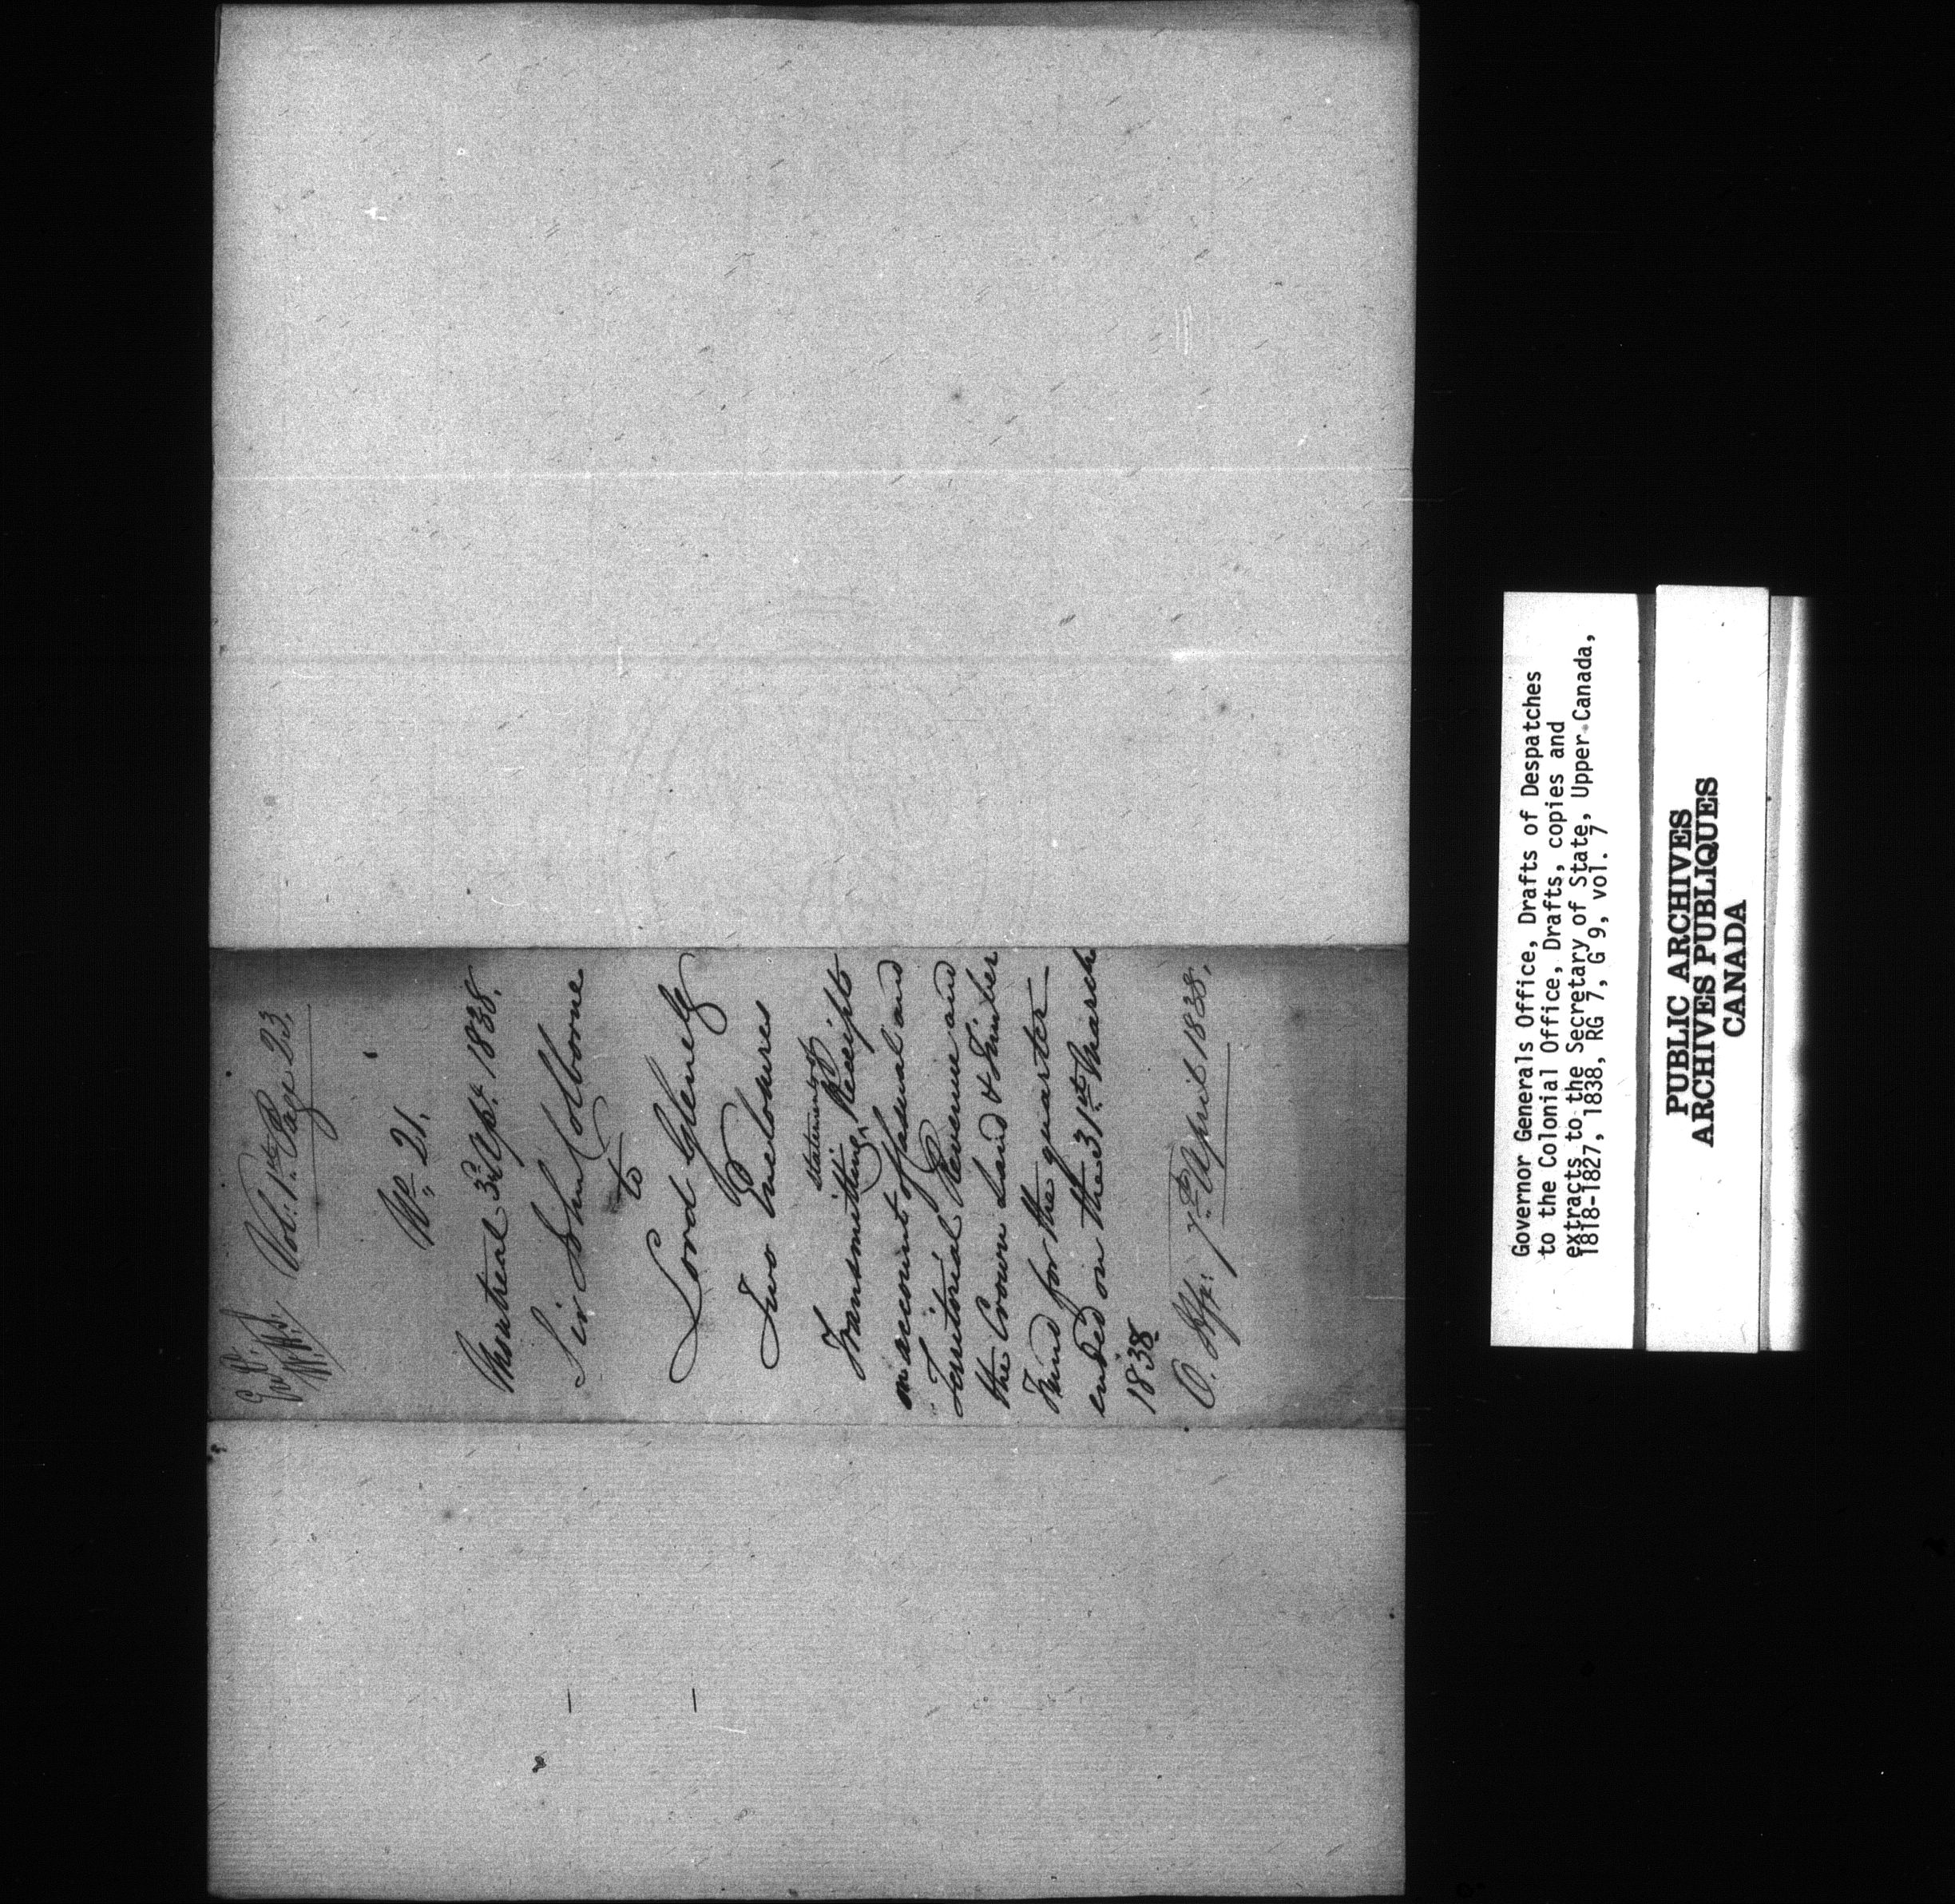 Vol: 1st Page 23.
No 21.
Montreal 3rd Apl. 1838.
Sir John Colborne
to
Lord Glenelg
Two Enclosures
statements of
Transmitting ^ Receipts
on account of Casual and
Territorial Revenue and
the Crown Land & Timber
Fund for the quarter
ended on the 31st March
1838
7th April 1838.
Governor Generals Office, Drafts of Despatches
to the Colonial Office, Drafts, copies and
extracts to the Secretary of State, Upper Canada,
1818-1827, 1838, RG 7, G 9, vol. 7
PUBLIC ARCHIVES
ARCHIVES PUBLIQUES
CANADA